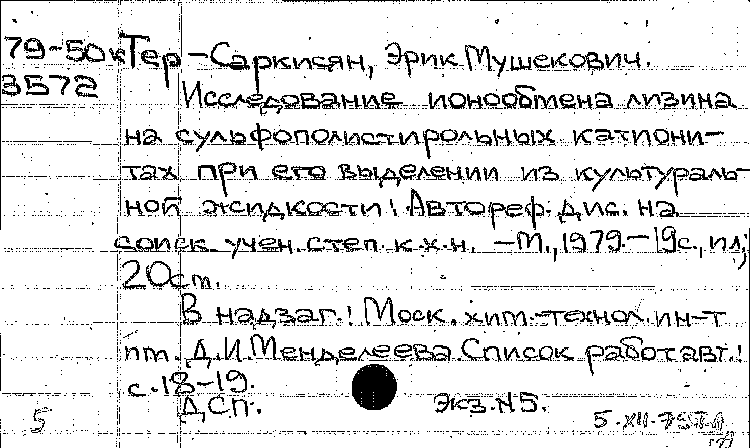 79-50к Тер-Саркисян, Эрик Мушекович.
3572
Исследование ионообмена лизина
на сульфополистирольных катиони-
тах при его выделении из культураль-
ной жидкости: Автореф. дис. на
соиск. учен. степ. к.х.н. -М., 1979.-19с., ил;
20см.
В надзаг.: Моск. хим.-технол. ин-т
им. Д.И.Менделеева Список работ авт.:
с.18-19.
Д.С.П.
Экз.N5.
5
5.XII.79